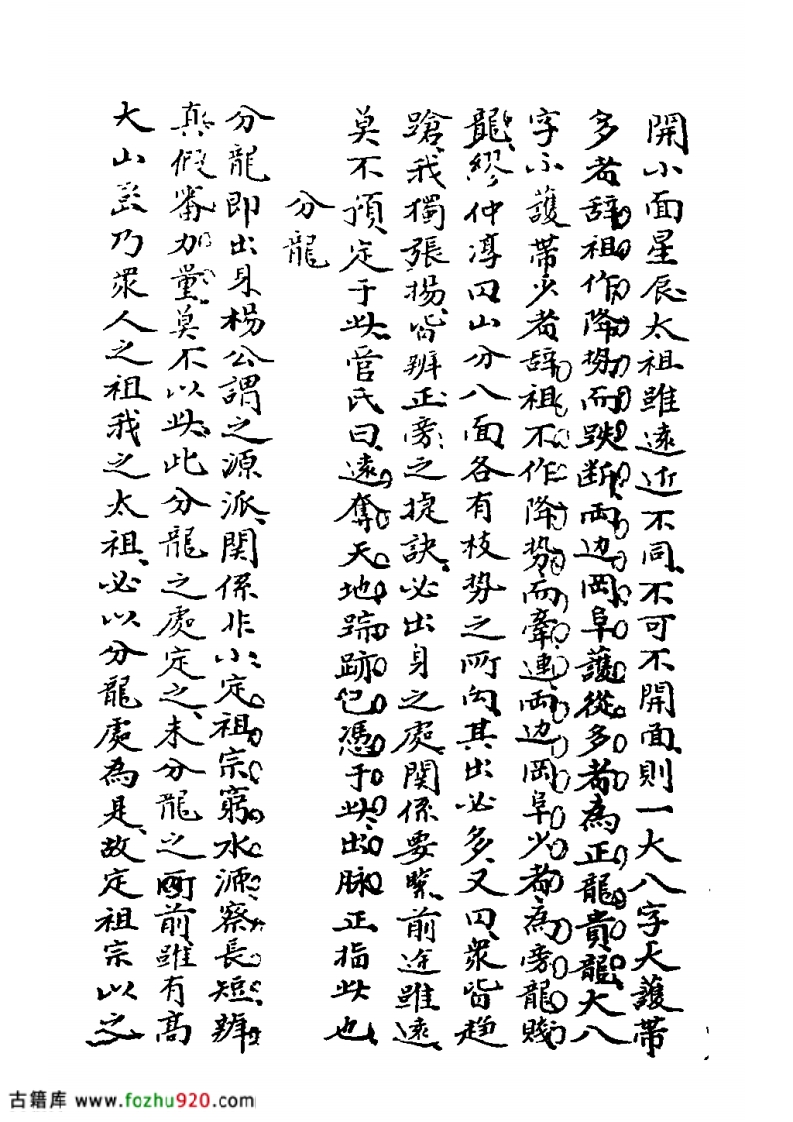 開小面星辰太祖雖遠近不同不可不開面則一大八字大護帶
多者辞祖作降勢而跌断両边岡阜護從多者為正龍貴龍大八
字小護帶少者辞祖不作降势而牽連両边岡阜少者為旁龍賤
龍繆仲淳曰山分八面各有枝势之所向其出必多又曰衆皆趋
蹌我獨張揚皆辨正旁之捷訣必出身之處関係要緊前途雖遠
莫不預定于此管氏曰遠奪天地踪跡已憑于此出脉正指此也
分龍
分龍即出身楊公謂之源派関係非小定祖宗窮水源察長短辨
真假審力量莫不以此此分龍之處定之未分龍之所前雖有高
大山峦乃衆人之祖我之太祖必以分龍處為是故定祖宗以之
古籍库 www.fozhu920.com